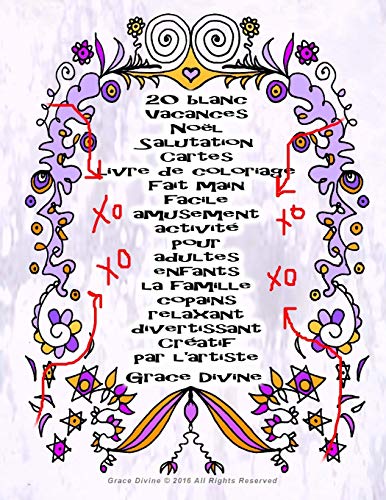 20 blanc
Vacances
Noël
Salutation
Cartes
Livre de coloriage
Fait Main
Facile
amusement
activité
pour
adultes
enfants
la famille
copains
relaxant
divertissant
créatif
par l'artiste
Grace Divine
XO XO
XO XO
Grace Divine © 2016 All Rights Reserved